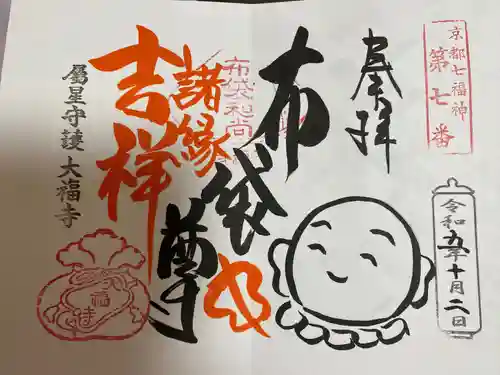 京都七福神
第七番
奉拝
令和五年十月二日
布袋尊
布袋和尚
諸縁
吉祥
属星守護 大福寺
福